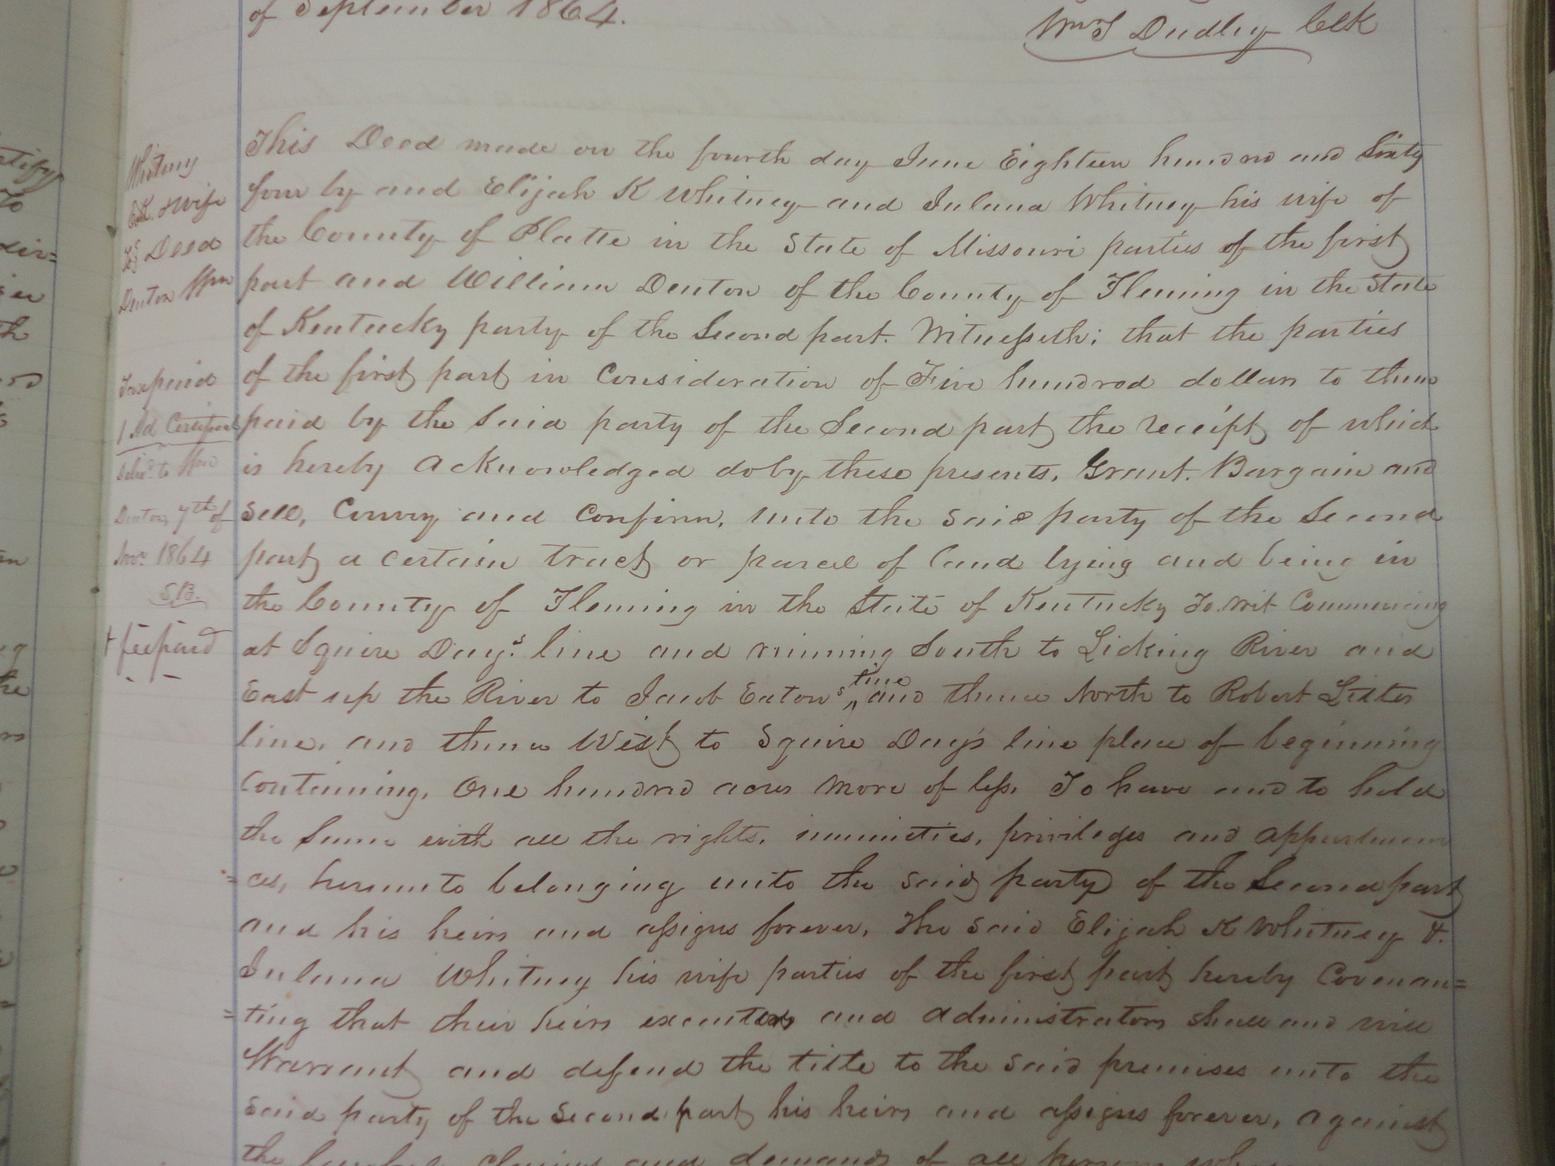 of September 1864.
Wm T Dudley Clk
Whitney
E.K. & Wife
To Deed
Denton Wm
Tax paid
1 Ad Certificate
Deliv.d to Wm
Denton 7th of
Nov. 1864
fee paid
This Deed made on the fourth day June Eighteen hundred and Sixty
four by and Elijah K Whitney and Julana Whitney his wife of
the County of Platte in the State of Missouri parties of the first
part and William Denton of the County of Fleming in the State
of Kentucky party of the Second part. Witnesseth; that the parties
of the first part in Consideration of Five hundred dollars to them
paid by the Said party of the Second part the receipt of which
is hereby acknowledged do by these presents, Grant. Bargain and
sell, Convey and Confirm, unto the Said party of the Second
part a certain tract or parcel of land lying and being in
the County of Fleming in the State of Kentucky To. wit Commencing
at Squire Day.s line and running South to Licking River and
East up the River to Jacob Eaton's line and thence North to Robert Lister
line, and thence West to Squire Day's line place of beginning
Containing, One hundred acres more of less. To have and to hold
the Same with all the rights, immunities, privileges and appurtenan
=ces, hereunto belonging unto the said party of the Second part
and his heirs and assigns forever, The Said Elijah K Whitney &.
Julana Whitney his wife parties of the first part hereby Covenan=
=ting that their heirs executors and administrators shall and will
Warrant and defend the title to the said premises unto the
said party of the second part his heirs and assigns forever, against
the lawful claims and demands of all persons